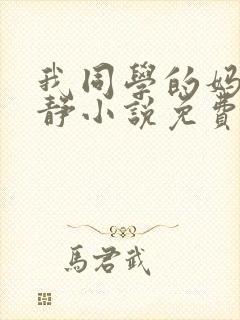 我同學的妈
靜小說免費
馬君武